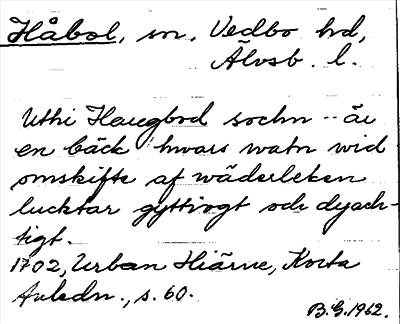 Håbol, sn, Vedbo hd,
Älvsb. l.
Uthi Haugbod sochn -- är
en bäck hwars watn wid
omskifte af wäderleken
lucktar gyttiogt och dyach-
tigt.
1702, Urban Hiärne, Korta
Anledn., s. 60.
B.G. 1962.